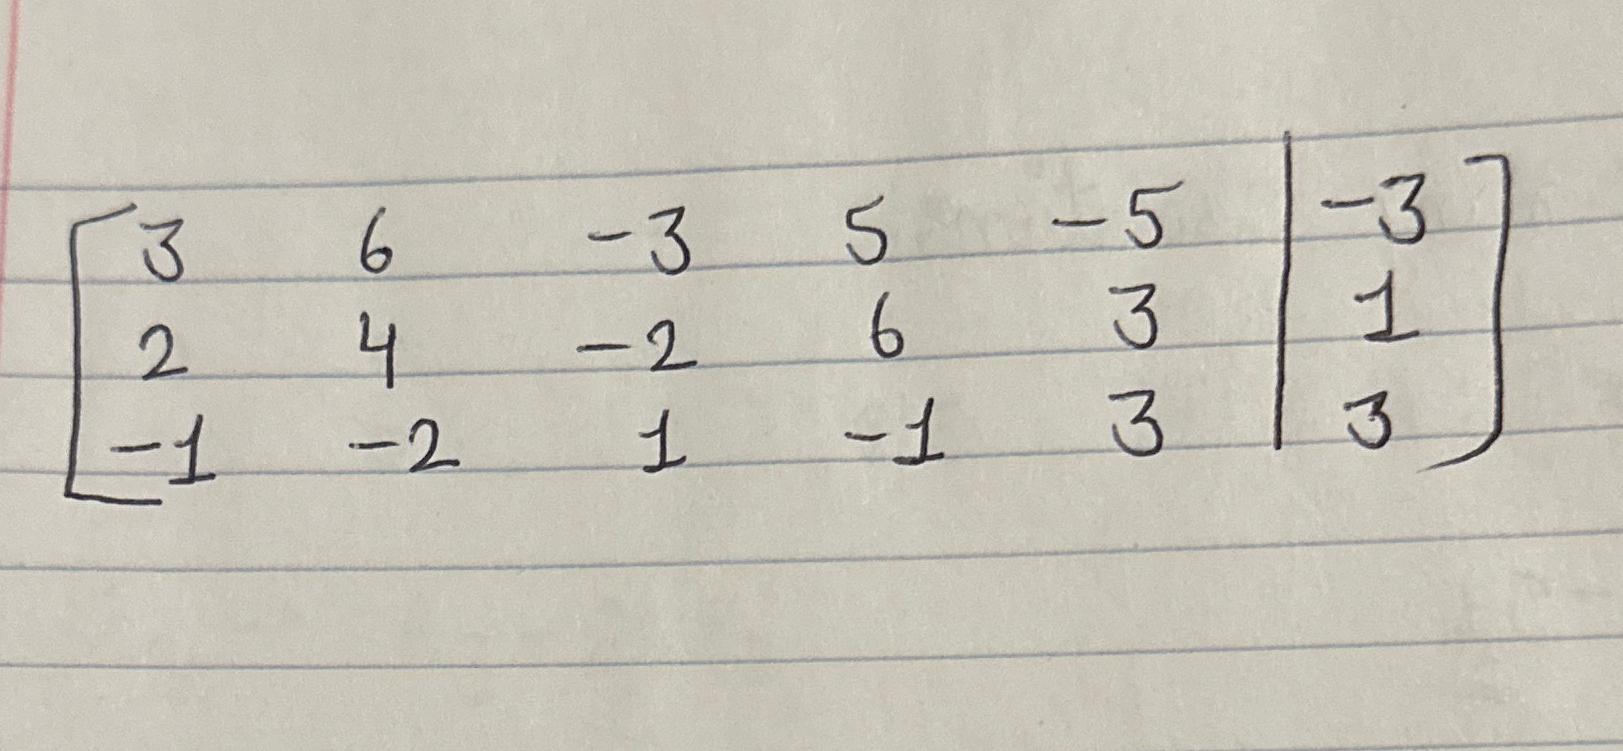 3 6 -3 5 -5 | -3
2 4 -2 6 3 | 1
-1 -2 1 -1 3 | 3